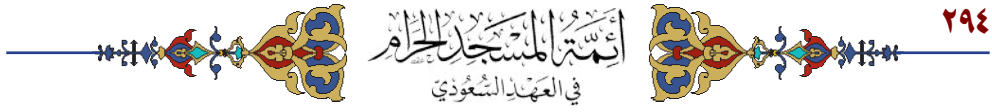 ٢٩٤
أَئِمَّةُ المَسْجِدِ الحَرَامِ
فِي العَهْدِ السُّعُودِيّ